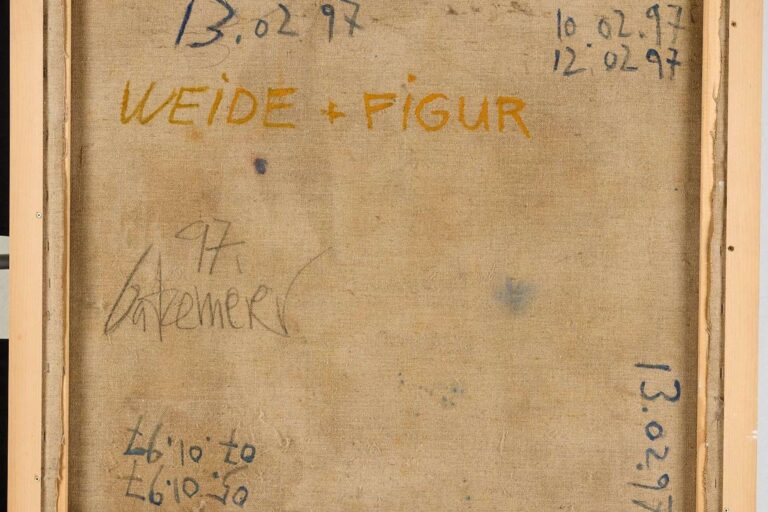 13.02 97
10 02.97
12.02 97
WEiDE + FiGUR
97.
13.02.97
05.01.97
07.01.97